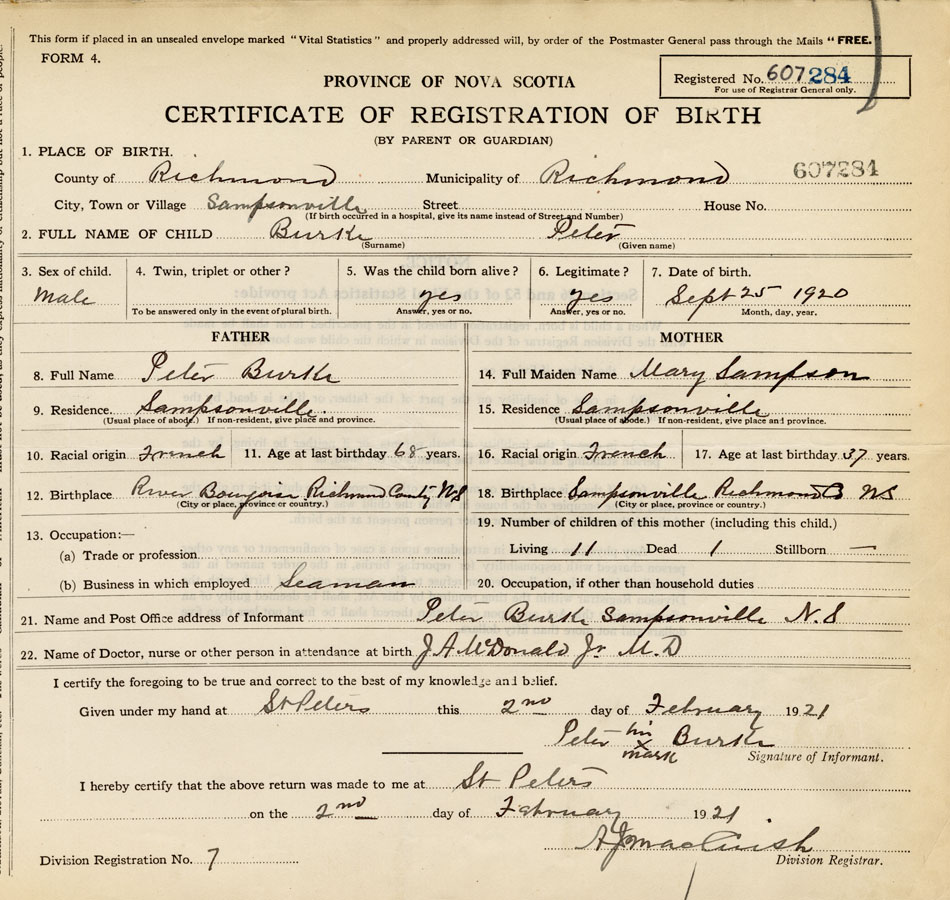 This form if placed in an unsealed envelope marked "Vital Statistics" and properly addressed will, by order of the Postmaster General pass through the Mails "FREE."
FORM 4.
Registered No. 607284
For use of Registrar General only.
PROVINCE OF NOVA SCOTIA
CERTIFICATE OF REGISTRATION OF BIRTH
(BY PARENT OR GUARDIAN)
1. PLACE OF BIRTH.
607284
County of Richmond Municipality of Richmond
City, Town or Village Sampsonville Street House No.
(If birth occurred in a hospital, give its name instead of Street and Number)
2. FULL NAME OF CHILD Burke Peter
(Surname) (Given name)
3. Sex of child. 4. Twin, triplet or other? 5. Was the child born alive? 6. Legitimate? 7. Date of birth.
Male yes yes Sept 25 1920
To be answered only in the event of plural birth. Answer, yes or no. Answer, yes or no. Month, day, year.
FATHER MOTHER
8. Full Name Peter Burke 14. Full Maiden Name Mary Sampson
9. Residence. Sampsonville. 15. Residence Sampsonville
(Usual place of abode.) If non-resident, give place and province. (Usual place of abode.) If non-resident, give place and province.
10. Racial origin French 11. Age at last birthday 68 years. 16. Racial origin French 17. Age at last birthday 37 years.
12. Birthplace River Bourgoise Richmond County NS 18. Birthplace Sampsonville Richmond NS
(City or place, province or country.) (City or place, province or country.)
13. Occupation:— 19. Number of children of this mother (including this child.)
(a) Trade or profession Living 11 Dead 1 Stillborn —
(b) Business in which employed Seaman 20. Occupation, if other than household duties
21. Name and Post Office address of Informant Peter Burke Sampsonville N.S
22. Name of Doctor, nurse or other person in attendance at birth J A McDonald Jr M.D
I certify the foregoing to be true and correct to the best of my knowledge and belief.
Given under my hand at St Peters this 2nd day of February 1921
Peter his x mark Burke
Signature of Informant.
I hereby certify that the above return was made to me at St Peters
on the 2nd day of February 1921
Division Registration No. 7 Division Registrar.